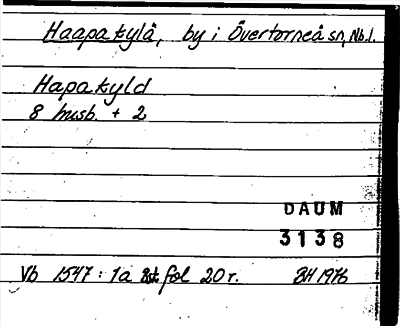 Haapakylä, by i Övertorneå sn, Nb.l.
Hapakyld
8 husb. + 2
DAUM
3138
Vb 1547: 1a fol 20 r. BH 1976